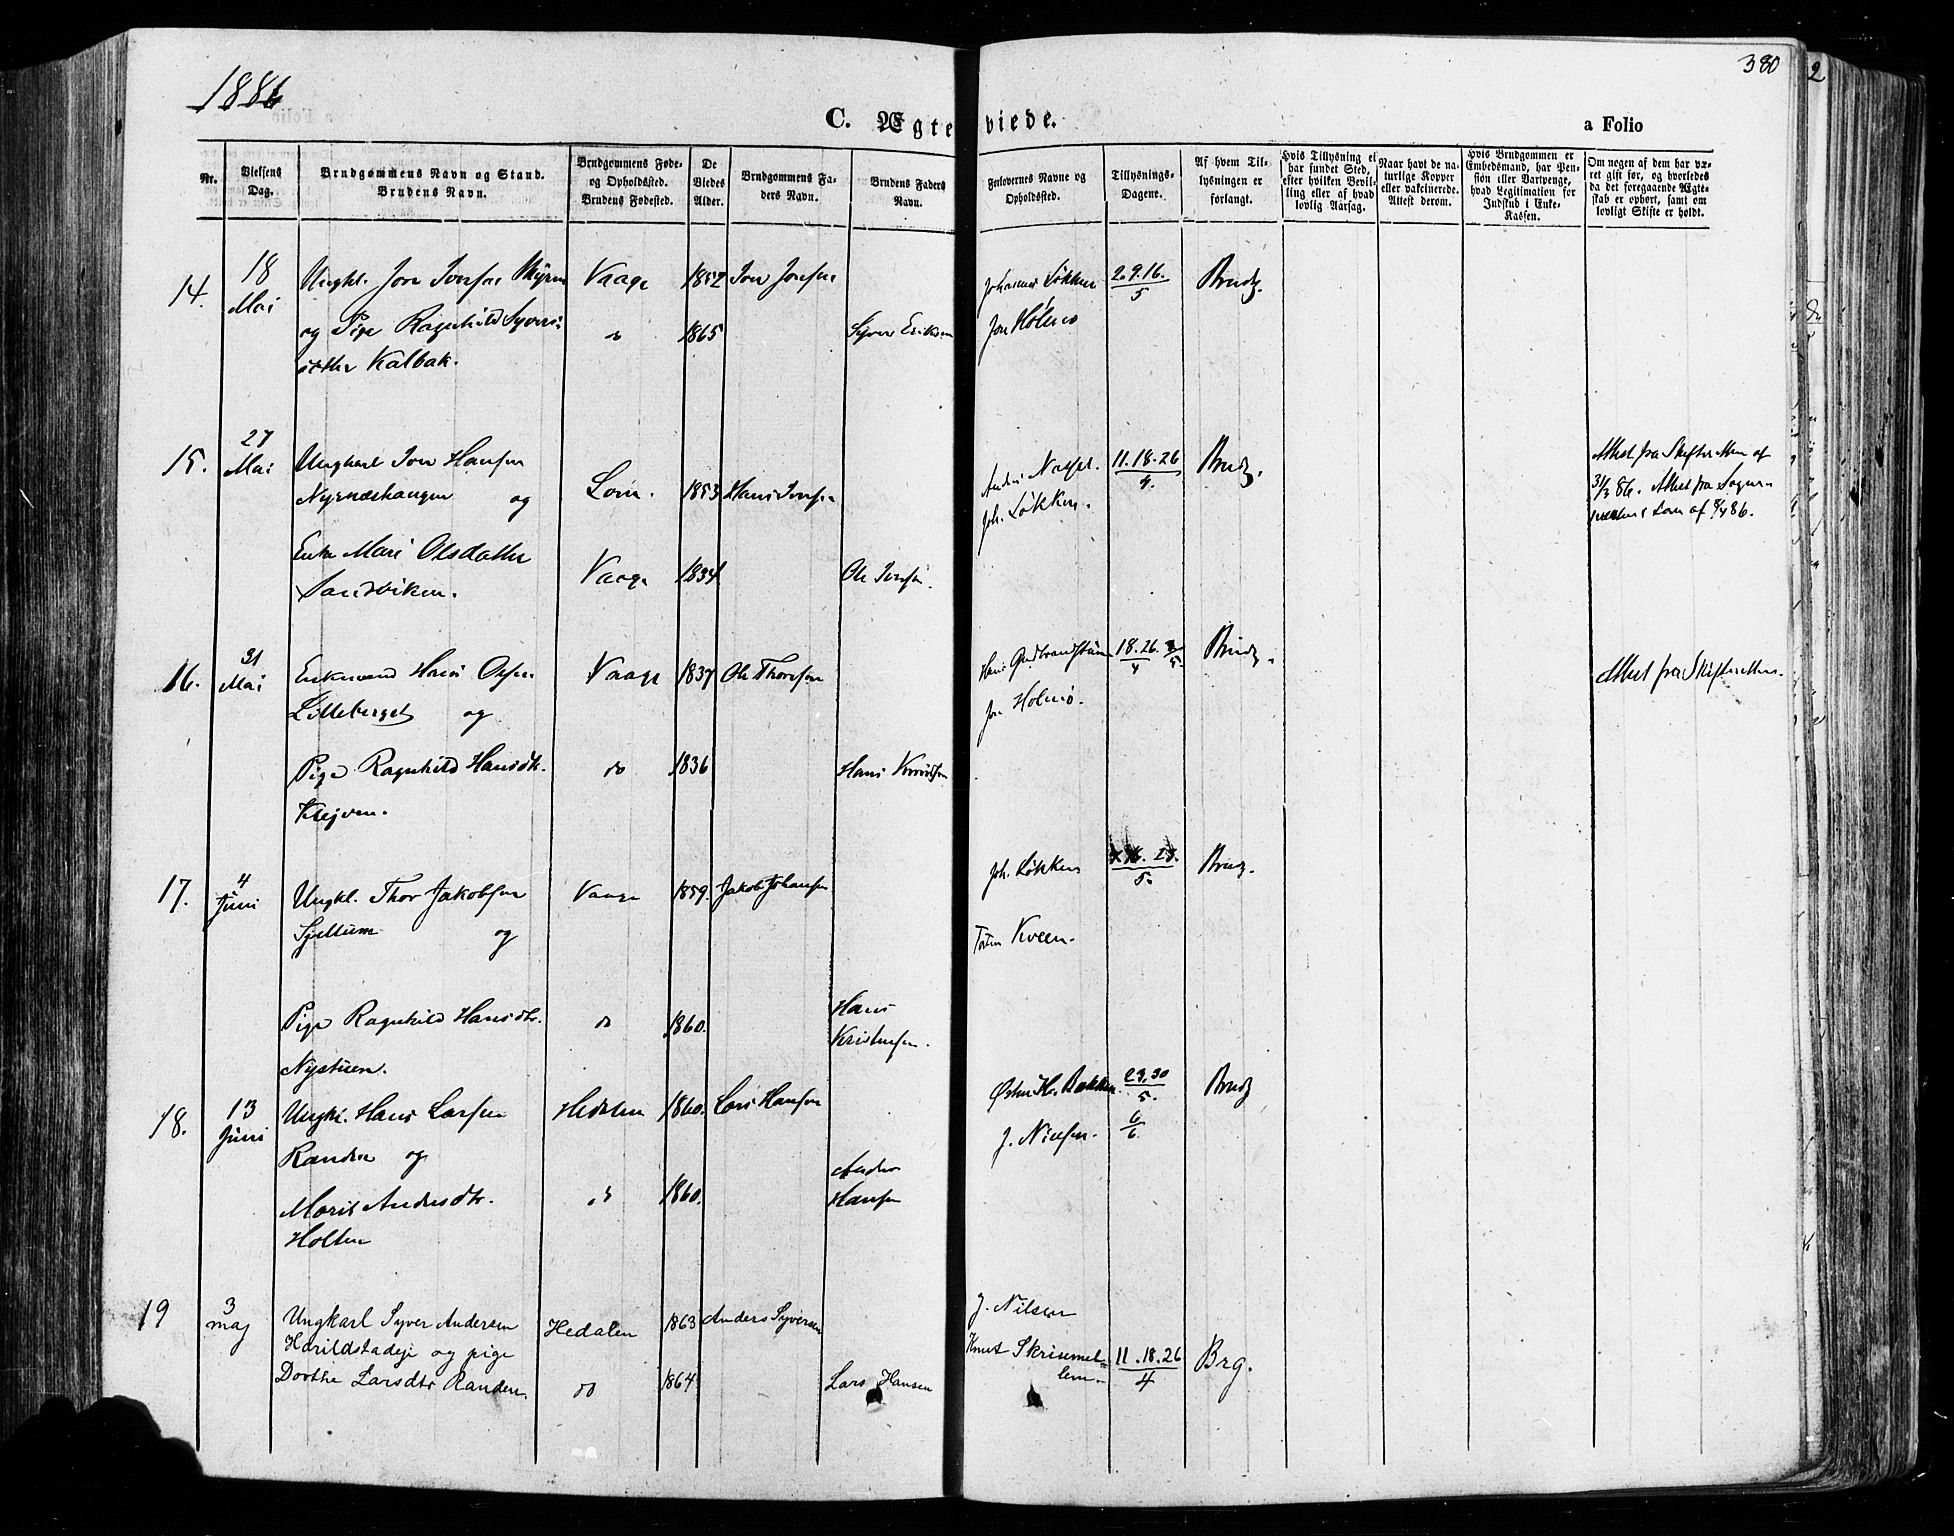 1886
380
2
C. Ægteviede.
a Folio
Nr.
Vielsens Dag.
Brudgommens Navn og Stand.
Brudens Navn.
Brudgommens Føde-
og Opholdssted.
Brudens Fødested.
De
Viedes
Alder.
Brudgommens Fa-
ders Navn.
Brudens Faders
Navn.
Forlovernes Navne og
Opholdssted.
Tillysnings-
Dagene.
Af hvem Til-
lysningen er
forlangt.
Hvis Tillysning ei
har fundet Sted,
efter hvilken Bevil-
ling eller af hvad
lovlig Aarsag.
Naar havt de na-
turlige Kopper
eller vakcinerede.
Attest derom.
Hvis Brudgommen er
Embedsmand, har Pen-
sion eller Vartpenge,
hvad Legitimation for
Indskud i Enke-
Kassen.
Om nogen af dem har væ-
ret gift før, og hvorledes
da det foregaaende Ægte-
skab er ophørt, samt om
lovligt Skifte er holdt.
14.
18
Mai
Ungkl. Jon Iversen
og Pige Ragnhild Syvers-
datter Kalbak.
Vaage
do
1852
1865
Iver Jonsen
Syver Eriksen
Johannes Løkken
Jon Holmø
2.9.16.
5
Brudg.
15.
27
Mai
Ungkarl Iver Hansen
Nyrnæshaugen og
Enke Mari Olsdatter
Sandviken.
Lom.
Vaage
1853
1834
Hans Iversen
Ole Iversen.
Joh. Løkken.
11.18.26
4.
Brudg.
Attest fra Skifteretten af
31/3 86. Attest fra Sogne-
præsten i Lom af /4 86.
16.
31
Mai
Enkemand Hans Olsen
Lilleberget og
Pige Ragnhild Hansdtr.
Kleiven.
Vaage
do
1837
1836
Ole Thorsen
Hans
Hans Gudbrandstuen
Jon Holmø.
18.26.
4
5.
Brudg.
Attest fra Skifteretten.
17.
4
Juni
Ungkl. Thor Jakobsen
Sjellum og
Pige Ragnhild Hansdtr.
Nystuen.
Vaage
do
1859.
1860.
Jakob Johansen
Hans
Kristensen.
Joh. Løkken
Kveen.
16. 23.
5.
Brudg.
18.
13
Juni
Ungkl. Hans Larsen
Randen og
Marit Andersdtr.
Holten
Hedalen
do
1860.
1860.
Lars Hansen
Anders
Hansen
Østen H. Bakken.
J. Nielsen.
23.30
5.
6
6.
Brudg
19
3
maj
Ungkarl Syver Andersen
Harildstadeje og pige
Dorthe Larsdtr Randen.
Hedalen
do
1863
1864
Anders Syversen
Lars Hansen
J. Nilsen
Knut Skrinnsel-
lem-
11.18.26
4
Brg.